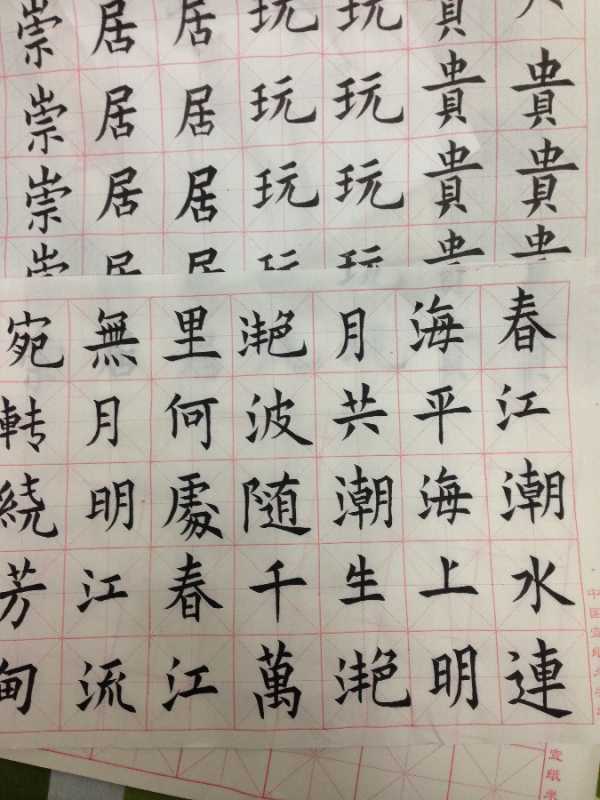 貴貴
貴貴
玩玩玩
玩玩玩
居居居
居居居
崇崇崇
春江潮水連
海平海上明
月共潮生滟
滟波随千萬
里何處春江
無月明江流
宛轉繞芳甸